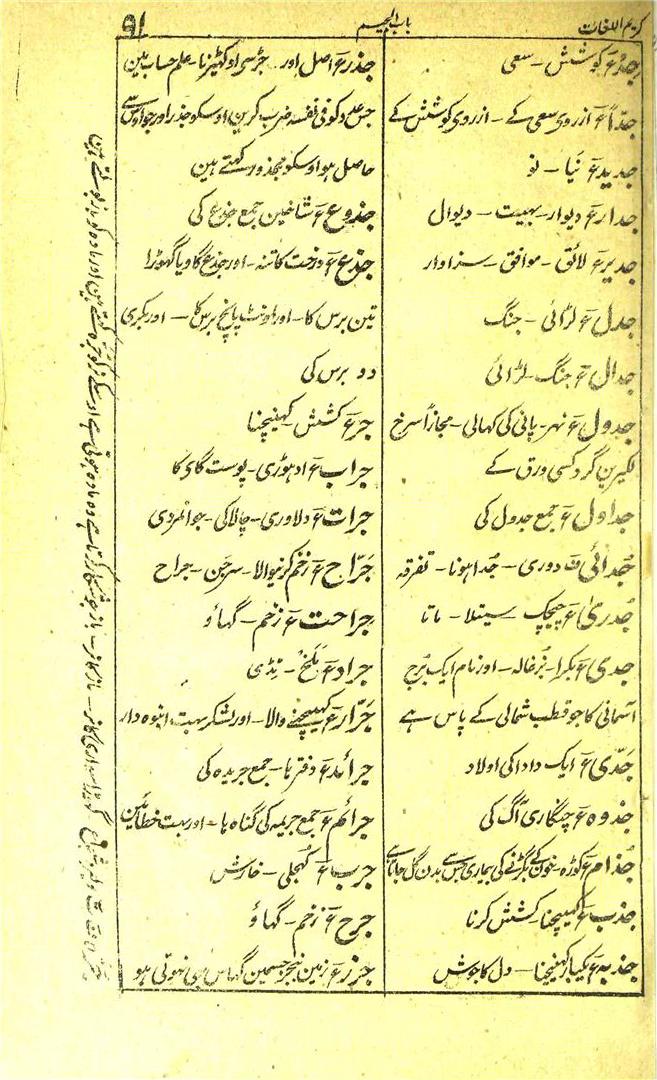 کریم اللغات
باب الجیم
۹۱
جِدّ ع کوشش - سعی
جدّاً ع ازروی سعی کے - ازروی کوشش کے
جدید ع نَیا - نو
جدار ع دیوار - بہیت - دیوال
جدیر ع لائق - موافق - سزاوار
جدل ع لڑائی - جنگ
جدال ع جنگ - لڑائی
جدول ع نہر - پانی کی کہالی - مجازاً سرخ
لکیرین گرد کسی ورق کے
جداول ع جمع جدول کی
جُدائی ف دوری - جُدا ہونا - تفرقہ
جُدری ع چیچک سیتلا - ماتا
جدی ع بکرا - بزغالہ - اور نام ایک برج
آسمانی کا جو قطب شمالی کے پاس ہے
جَدّی ع ایک دادا کی اولاد
جذوہ ع چنگاری آگ کی
جُذام ع کوڑہ - خون کے بگڑنے کی بیماری جس سے بدن گل جاتا ہے
جذب ع کہیچنا کشش کرنا
جذبہ ع یکبار کہینچنا - دل کا جوش
جذر ع اصل اور جڑ سی اوکھیڑنا - علم حساب مین
جس عدد کو فی نفسہ ضرب کرین اوسکو جذر اور جو اوس سے
حاصل ہو اوسکو مجذور کہتے ہین
جذوع ع شاخین جمع جذع کی
جذع ع درخت کا تنہ - اور جذع گاو یا گھوڑا
تین برس کا - اور اونٹ پانچ برس کا - اور بکری
دو برس کی
جر ع کشش - کہینچنا
جراب ع ادہوڑی - پوست گای کا
جرات ع دلاوری - چالاکی - جوانمردی
جَرّاح ع زخم کرنیوالا - سرجن - جراح
جراحت ع زخم - گہاؤ
جراد ع مَلَخ - ٹڈی
جَرّار ع کہیچنے والا - اور لشکر بہت انبوہ دار
جرائد ع دفترہا - جمع جریدہ کی
جرائم ع جمع جریمہ کی گناہ ہا - اور بہت خطائین
جرب ع کہجلی - خارش
جرح ع زخم - گہاؤ
جرز ع زمین بنجر جسمین گہاس بہی نہوتی ہو